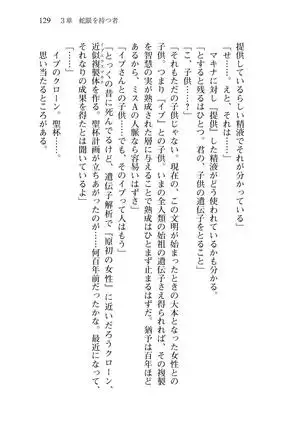 129　3章　蛇眼を持つ者
提供しているらしい精液でそれが分かっている」
「せ……。えと、それは……」
マキナに対し『提供』した精液がどう使われているかも分かる。
「とすると残るはひとつ。君の、子供の遺伝子をとること」
「子供？」
「それもただの子供じゃない。現在の、この文明が始まったときの大本となった女性との
子供。つまり『イブ』との子供。いまの全人類の始祖の遺伝子さえ得られれば、その複製
を智慧の実が熟成された層に与えることで熟成はひとまず止まるはずだ。猶予は百年ほど
あるから、ミスAの人脈なら容易いはずさ」
「イブさんとの子供……でも、そのイブって人はもう」
「とっくの昔に死んでるけど、遺伝子解析で『原初の女性』に近いだろうクローン、
近似複製体を作る。聖杯計画が立ちあがったのが……何百年前だったかな。最近になって、
それなりの成果を得たとは聞いているよ」
「……」
イブのクローン。聖杯……。
思い当たるところがある。